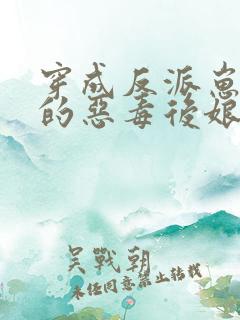 穿成反派崽
的惡毒後娘
吴戰朝
未经同意禁止转载